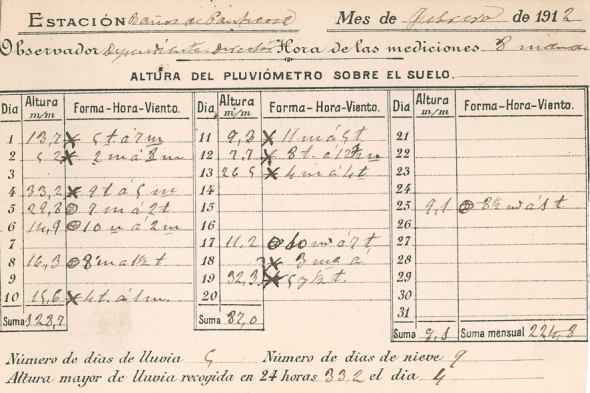 ESTACIÓN Baños de Panticosa Mes de febrero de 1912
Observador Dependiente Director Hora de las mediciones 8 mañana
ALTURA DEL PLUVIÓMETRO SOBRE EL SUELO.
Día Altura m/m Forma-Hora-Viento. Día Altura m/m Forma-Hora-Viento. Día Altura m/m Forma-Hora-Viento.
1 13,7 5 t. á 7 m 11 9,3 11 m á 5 t 21
2 5 2 2 m á 8 m 12 7,7 8 t. á 22
3 13 26 5 4 m á 4 t 23
4 33,2 9 t á 5 m 14 24
5 29,8 7 m á 2 t 15 25 9,1 8½ m á 1 t
6 14,9 10 m á 2 m 16 26
7 17 11,2 10 m á 7 t 27
8 16,3 8 m a 1½ t 18 3 m a á 28
9 19 32,3 5 y ½ t. 29
10 15,6 4 t. á 1 m. 20 30
31
Suma 128,7 Suma 87,0 Suma 9,1 Suma mensual 224,8
Número de días de lluvia 5 Número de días de nieve 9
Altura mayor de lluvia recogida en 24 horas 33,2 el día 4